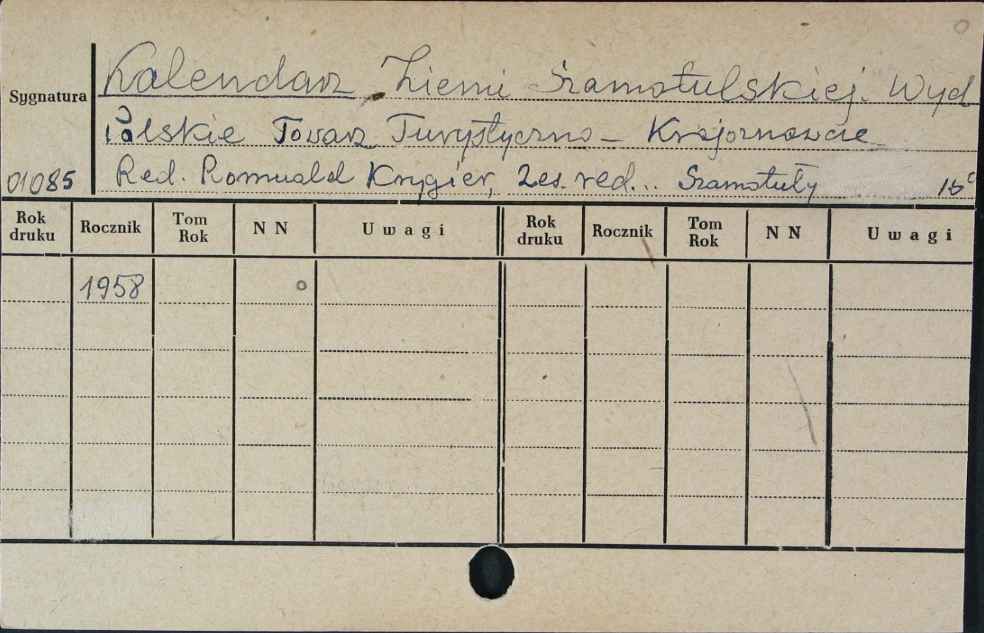 Kalendarz Ziemi Szamotulskiej. Wyd
Sygnatura
Polskie Towarz Turystyczno-Krajoznawcze
01085 Red. Romuald Krygier, Zes. red... Szamotuły
Rok druku Rocznik Tom Rok NN Uwagi Rok druku Rocznik Tom Rok NN Uwagi
1958